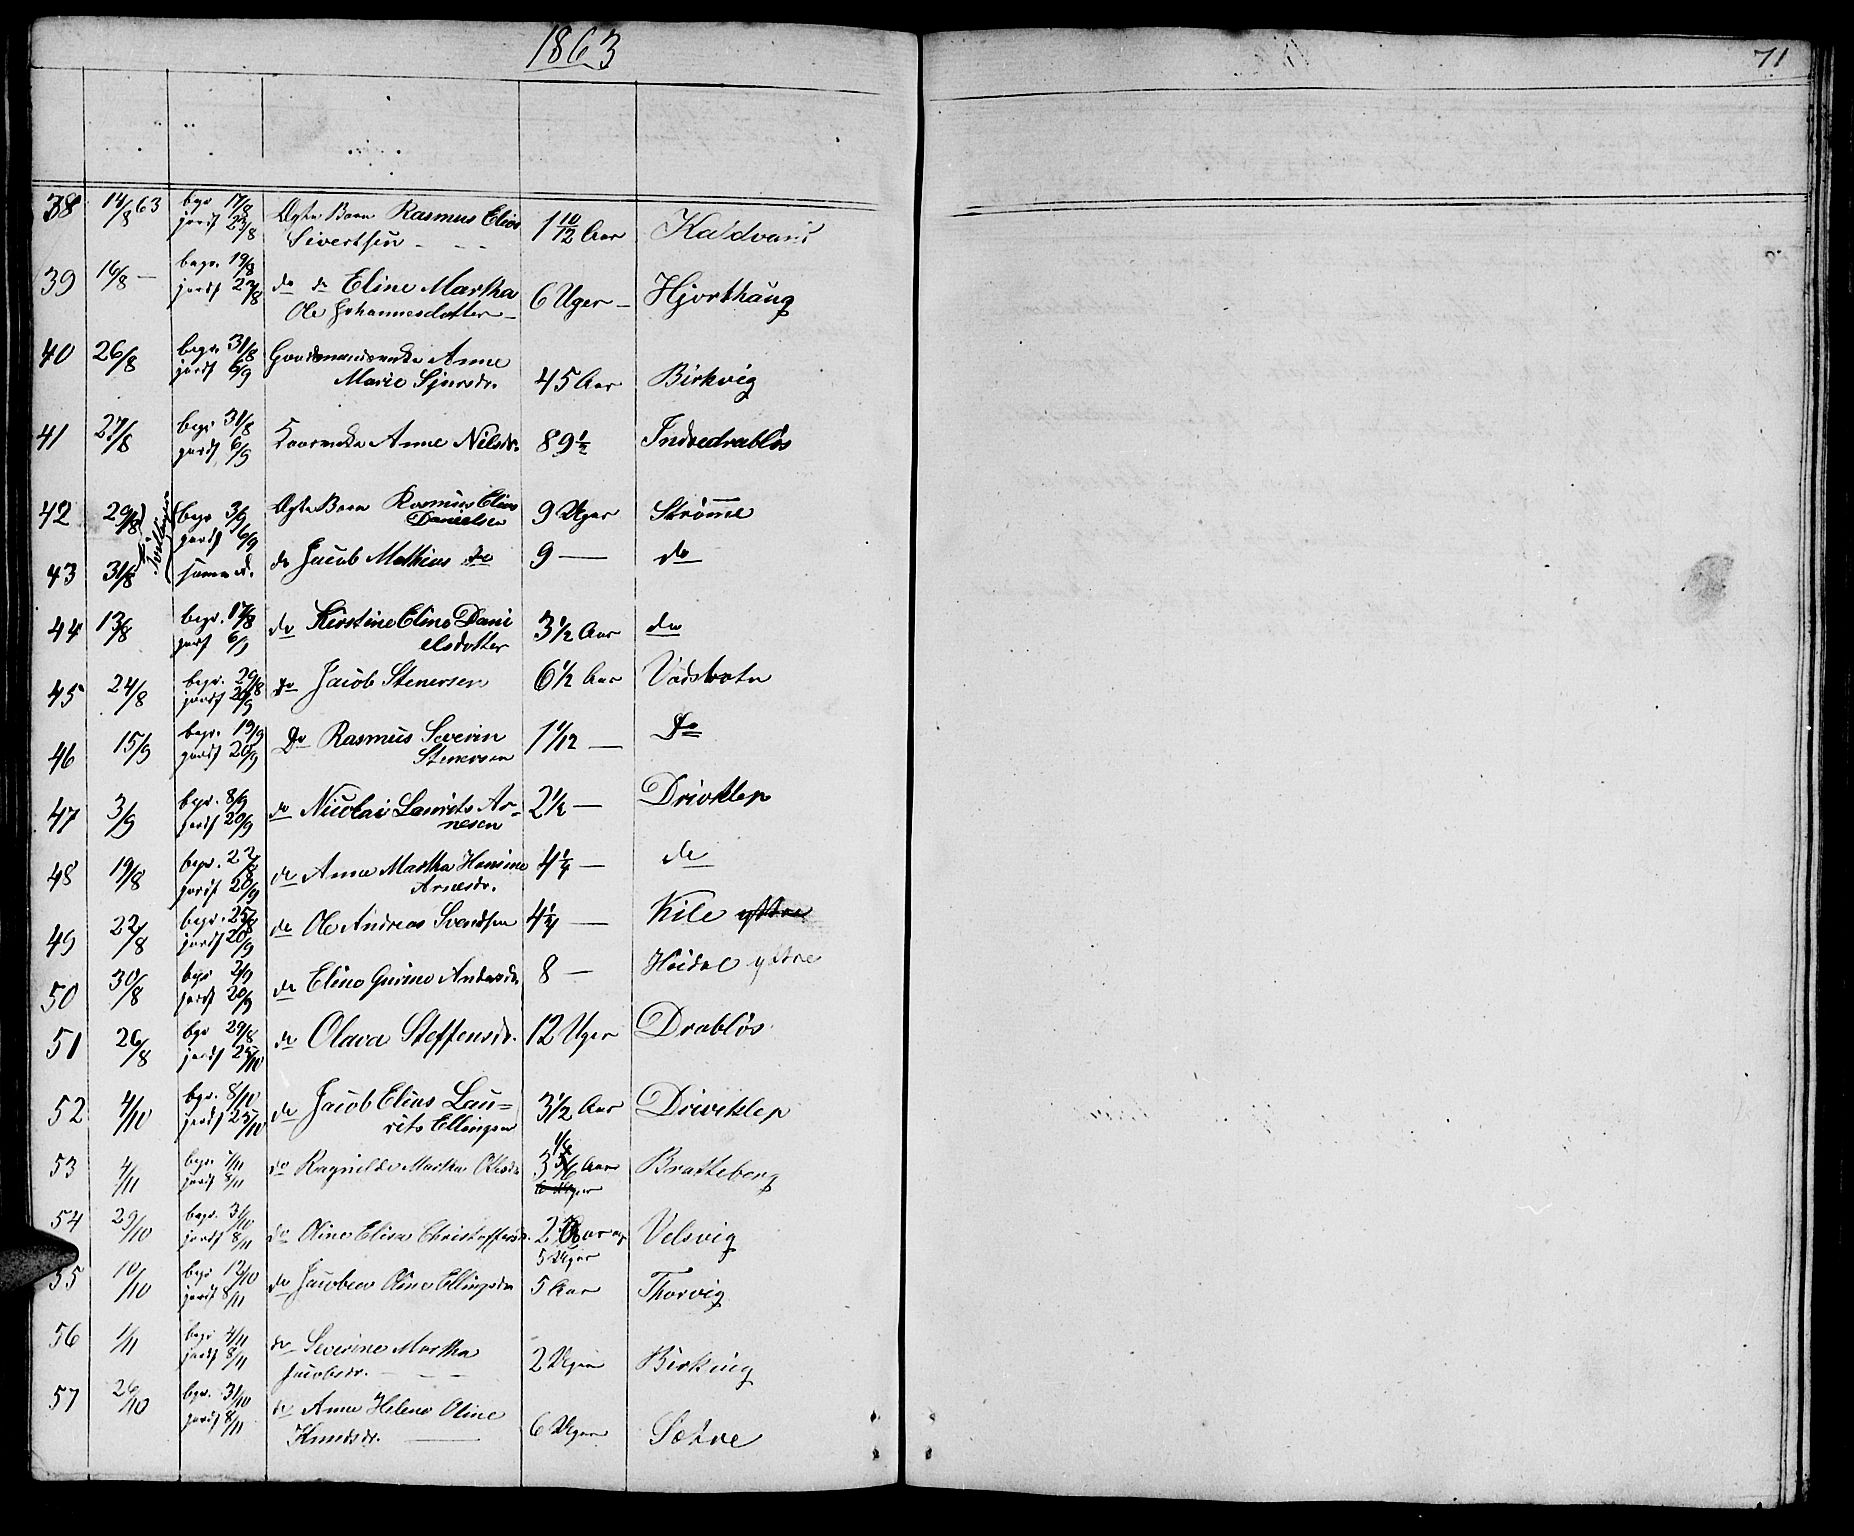 1863
71
38 14/8 63 begr 17/8 Ægte Barn Rasmus Elias 1 10/12 Aar Kaldvand
jordf 23/8 Sivertsen
39 16/8 — begr. 19/8 do do Eline Martha 6 Uger — Hjorthaug
jordf 23/8 Ole Johannesdatter —
40 26/8 begr. 31/8 Gaardmandsenke Anne
jordf 6/9 Marie Sjursdr. 45 Aar Birkvig
41 27/8 begr. 31/8 Kaarenke Anne Nilsdr. 89 1/2 Indredrabløs
jordf 6/9
42 29/8 begr 3/9 Ægte Barn Rasmus Elias 9 Uger Strømme
jordf 6/9 Danielsen
43 31/8 samme d. do Jacob Mathias do 9 — do
44 13/8 begr. 17/8 do Kirstine Eline Dani 3 1/2 Aar do
jordf 6/9 elsdatter
45 24/8 begr. 29/8 do Jacob Stenersen 6 1/2 Aar Vadstbotn
jordf 20/9
46 15/9 begr. 19/9 Do Rasmus Severin 1 1/12 — Do
jordf 20/9 Stenersen
47 3/9 begr. 8/9 do Nicolai Laurits Ar- 2 1/2 — Drivklep
jordf 20/9 nesen
48 19/8 begr. 22/8 do Anne Martha Hansine 4 1/4 — do
jordf 20/9 Arnesdr.
49 22/8 begr. 25/8 do Ole Andreas Svendsen 4 1/4 — Kile yttre
jordf 20/9
50 30/8 begr 2/9 do Eline Gurine Andersdr. 8 — Høidal yttre
jordf 20/9
51 26/8 bgr 29/8 do Olava Steffensdr. 12 Uger Drabløs
jordf 25/10
52 4/10 bgr. 8/10 do Jacob Elias Lau= 3 1/2 Aar Driveklep
jordf 25/10 rits Ellingsen
53 4/11 begr. 7/11 do Ragnilde Martha Olesdr. 3 Aar Bratteberg
jordf 8/11 6 Uger
54 29/10 begr. 31/10 do Oline Elise Christoffersdr. 2 Aar og Velsvig
jordf 8/11 5 Uger
55 10/10 begr 13/10 do Jacobea Oline Ellingsdr. 5 Aar Thorvig
jordf 8/11
56 1/11 begr 4/11 do Severine Martha
jordf 8/11 Jacobsdr. — — — 2 Uger Birkvig
57 26/10 begr. 31/10 do Anne Helene Oline
jordf 8/11 Knudsdr. — 6 Uger Sætre